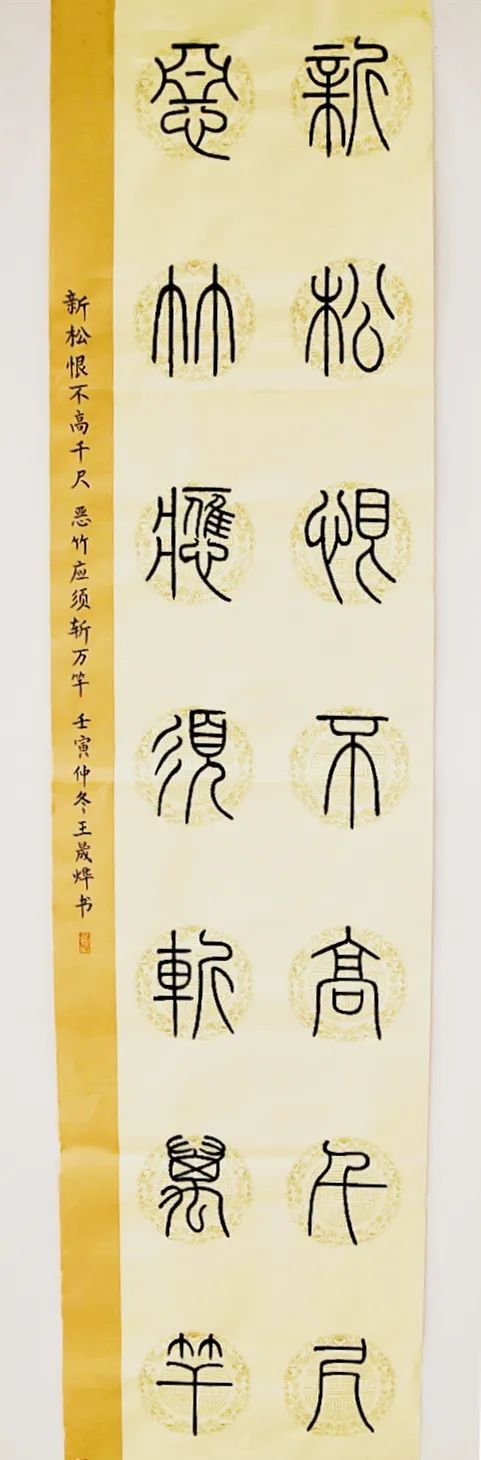 新松恨不高千尺
惡竹應須斬萬竿
新松恨不高千尺 恶竹应须斩万竿 壬寅仲冬王晟烨书